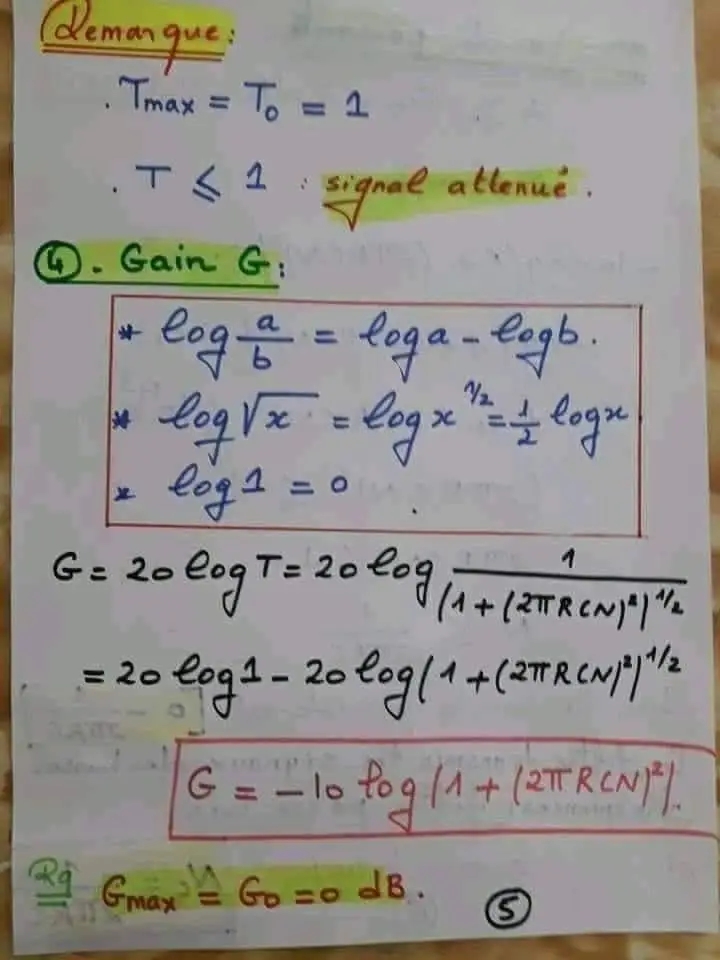 Remarque:
. Tmax = T₀ = 1
. T ⩽ 1 : signal attenué.
④. Gain G:
* log a/b = loga - logb.
* log √x = log x^1/2 = 1/2 logx
* log 1 = 0
G = 20 log T = 20 log 1/(1+(2πRCN)²)^1/2
= 20 log1 - 20 log(1+(2πRCN)²)^1/2
G = -10 log(1+(2πRCN)²).
Rq Gmax = G₀ = 0 dB.
⑤